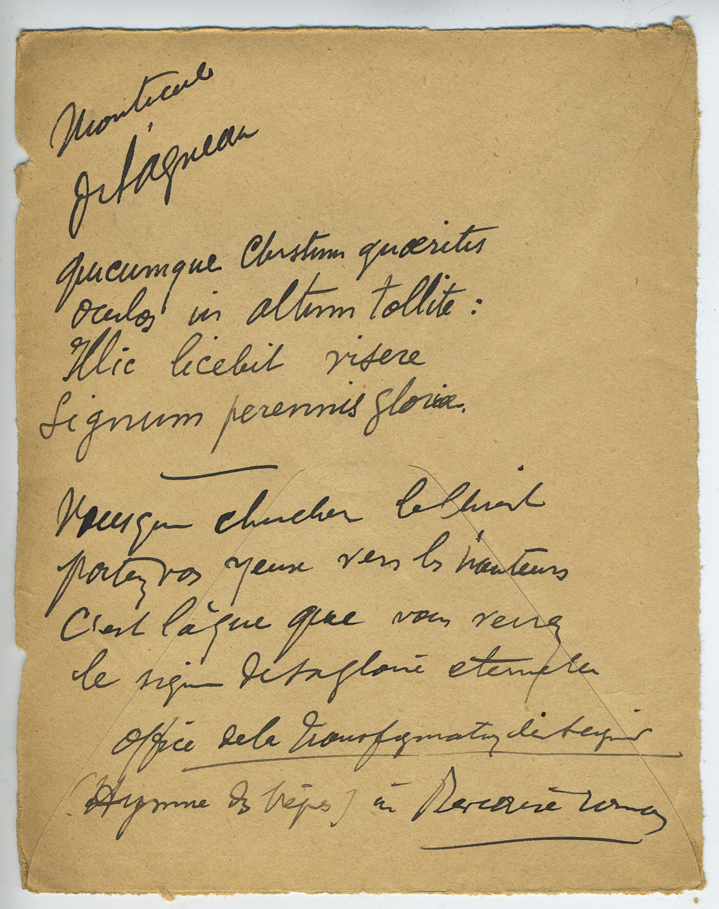 Monticule
de l'agneau
Quicumque Christum quæritis
oculos in altum tollite :
Illic licebit visere
Signum perennis gloriæ.
Vous qui cherchez le Christ
portez vos yeux vers les hauteurs
C'est là que que vous verrez
le signe de sa gloire eternelle
Office de la Transfiguration du Seigneur
(Hymne des Vêpres) in romain